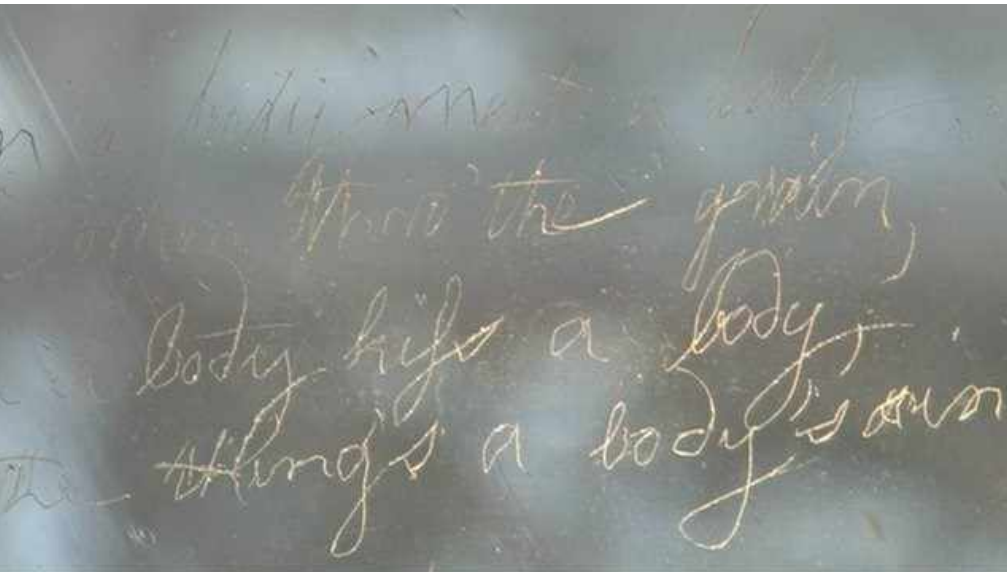 body meet a body
comin thro the grain,
body kiss a body,
The thing's a body's ain